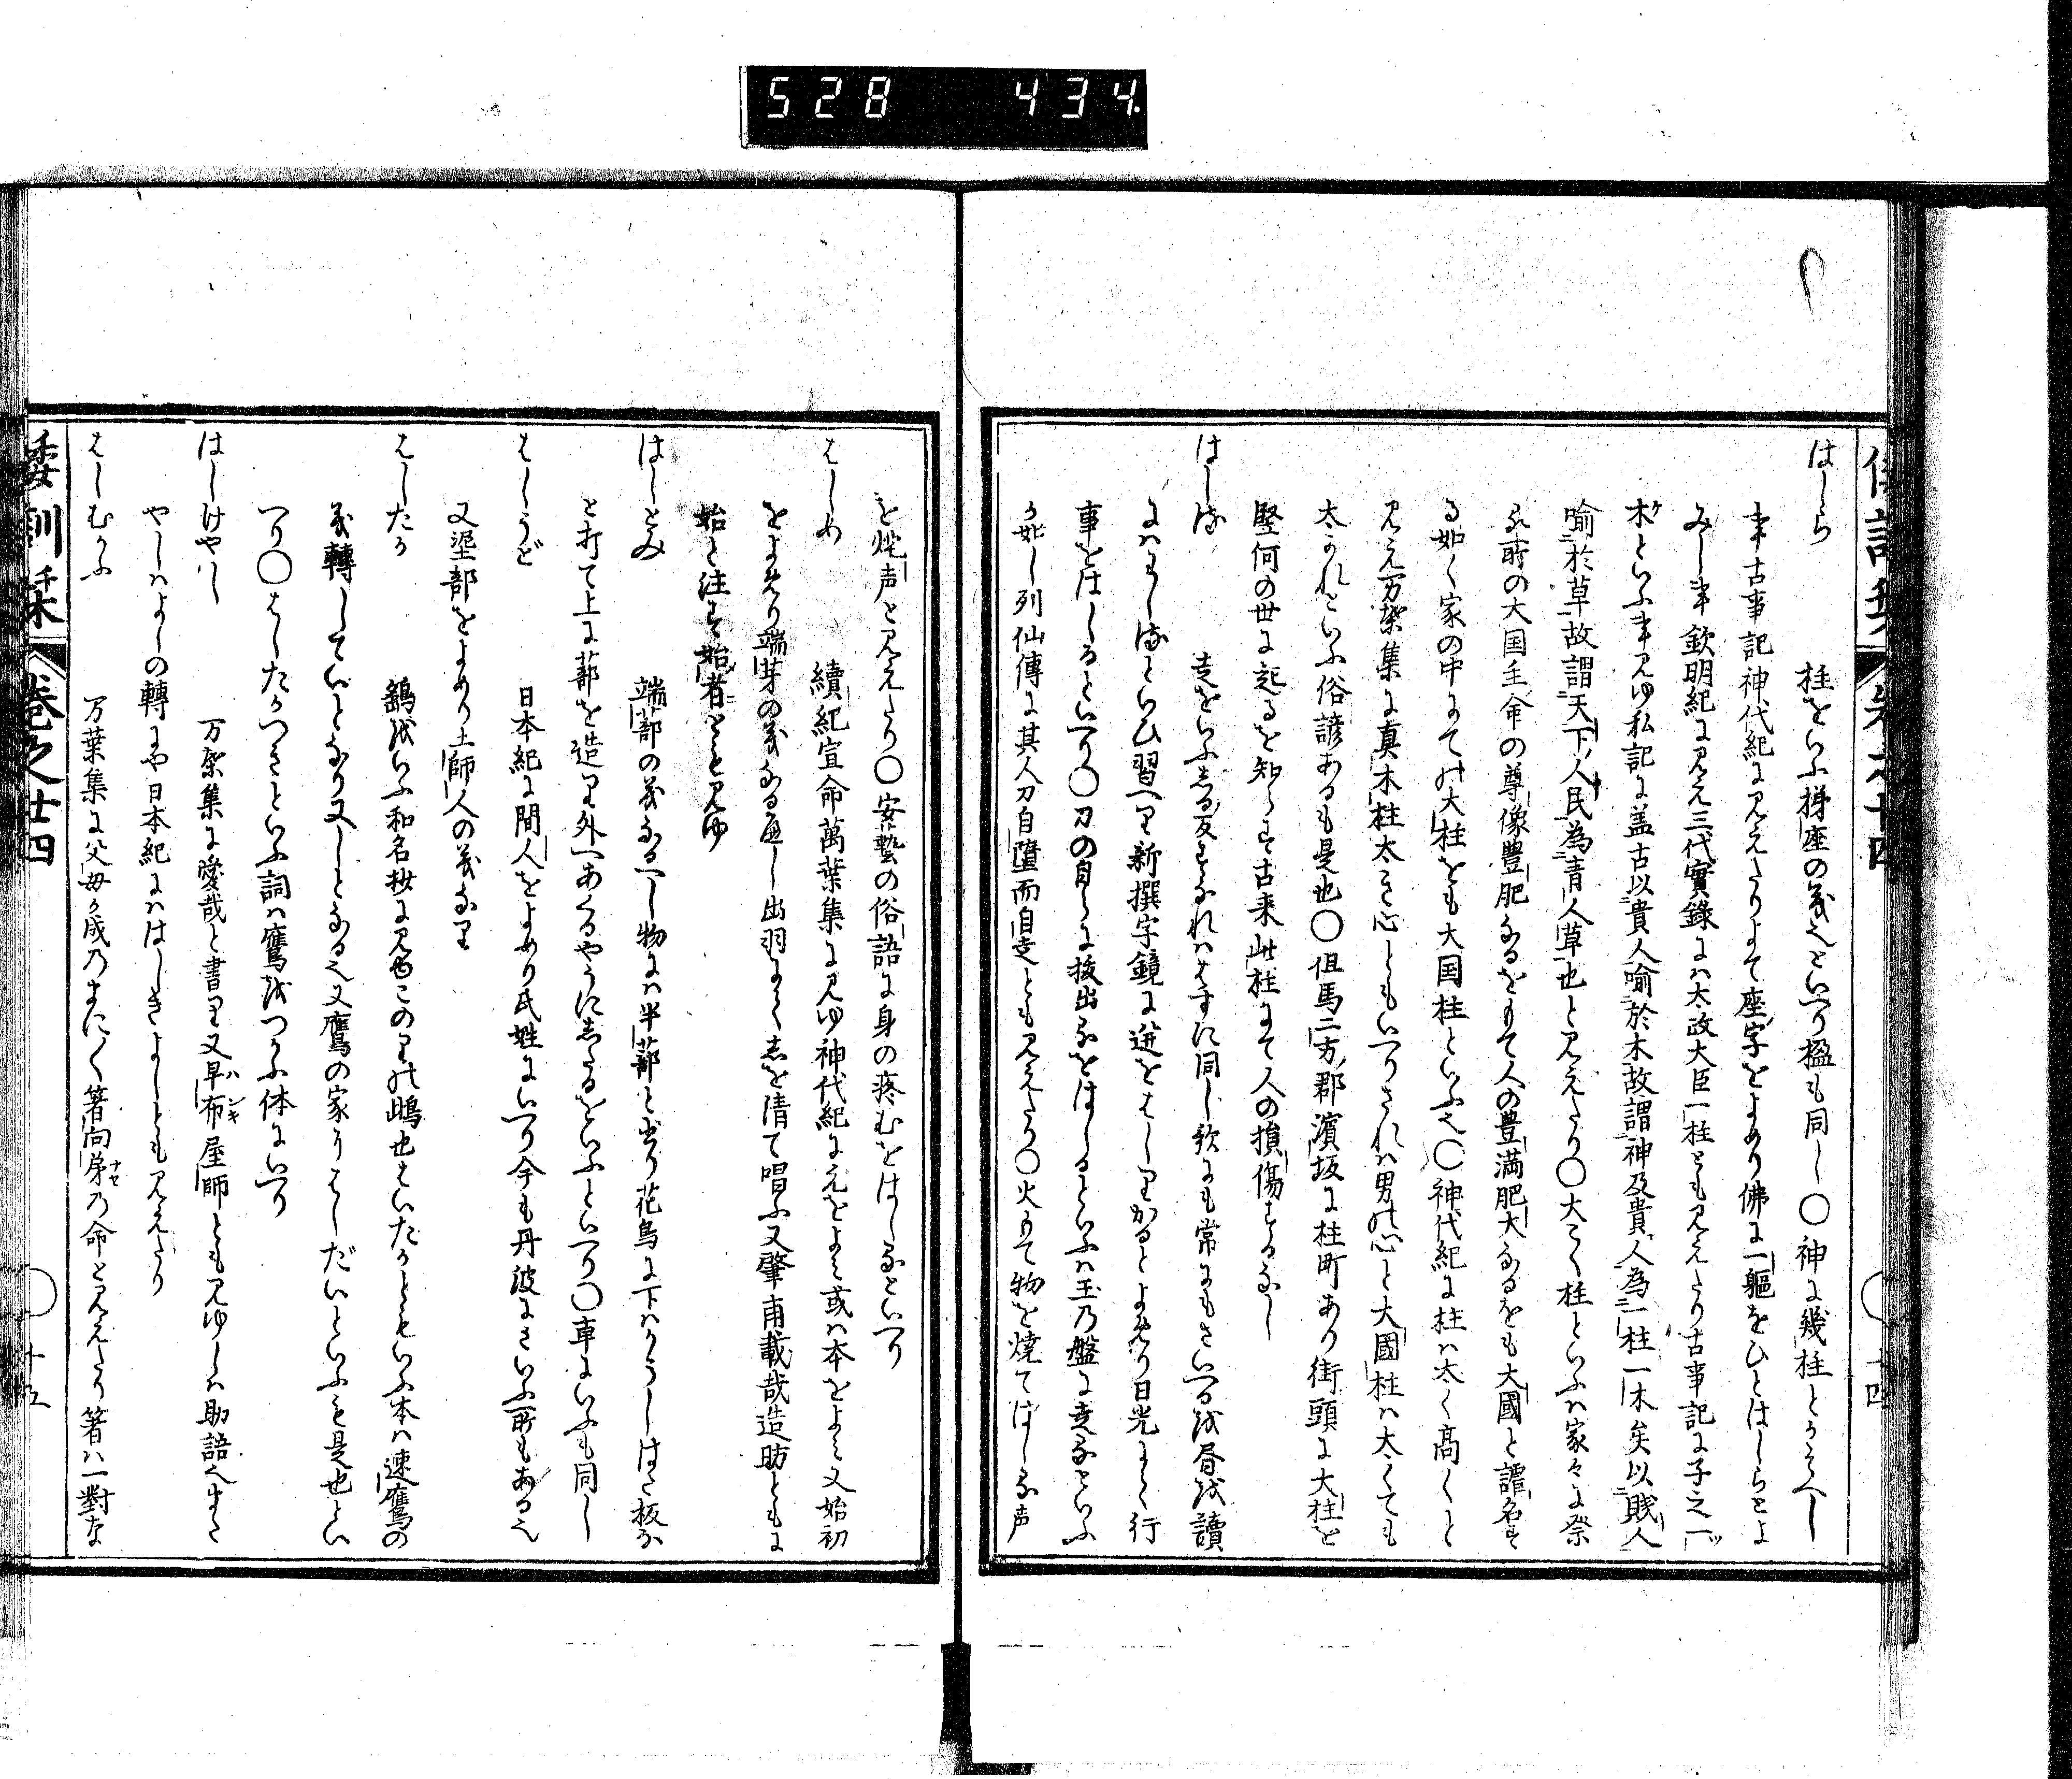 528 434
はしら 柱をいふ梯座の義也といへり楹も同し○神に幾柱とかそへし
事古事記神代紀に見えたりよて座字をよめり佛に一軀をひとはしらとよ
みし事欽明紀に見え三代實錄には太政大臣一柱とも見えたり古事記に子之一ツ
木ケといふ事見ゆ私記に盖古以貴人喻於木故謂神及貴人為一柱一木矣以賎人
喻於草故謂天下人民為青人草也と見えたり○大こく柱といふは家々に祭
る所の大国主命の尊像豊肥なるをもて人の豊満肥大なるをも大國と諢名す
る如く家の中にての大柱をも大国柱といふ也○神代紀に柱は太く高くと
見え万葉集に真木柱太き心ともいへりされは男の心と大國柱は太くても
太かれといふ俗諺あるも是也○但馬二方郡濱坂に柱町あり街頭に大柱を
竪何の世に起るを知らす古来此柱にて人の損傷するなし
はしる 走をいふしる反すなれははすに同し歌にも常にもさいへる或昼或讀
にはわしるといひ習へり新撰字鏡に迸をはしりかるとよめり日光にく行
事をはしるといへり○刀の自らに抜出るをはしるといふは玉乃盤に走るといふ
か如し列仙傳に其人刀自墮而自走とも見えたり○火もて物を燒てはしる声
を㶿声と見えたり○安藝の俗語に身の疼むをはしるといへり
はしめ 續紀宣命萬葉集に見ゆ神代紀に元をよみ或は本をよみ又始初
をよめり端芽の義なるへし出羽にてしを清て唱ふ又肇甫載哉造昉ともに
始と注す始者とと見ゆ
はしとみ 端蔀の義なるへし物には半蔀と書り花鳥に下はかうしはた板な
と打て上に蔀を造り外へあくるやうにしたるをいふといへり○車にいふも同し
はしうど 日本紀に間人をよめり氏姓にいへり今も丹波にさいふ所もある也
又埿部をよめり土師人の義なり
はしたか 鷂或いふ和名抄に見ゆこのりの鴟也はいたかともいふ本は速鷹の
義轉してはいとなり又しとなる也又鷹の家りはしだいといふも是也とい
へり○はしたかつきといふ詞は鷹或つかふ体にいへり
はしけやし 万葉集に愛哉と書り又早布屋師とも見ゆしは助語也また
やしはよしの轉にや日本紀にははしきよしとも見えたり
はしむかふ 万葉集に父母か成乃まにく箸向弟乃命と見えたり箸は一對な
倭訓栞 卷之廿四 十五